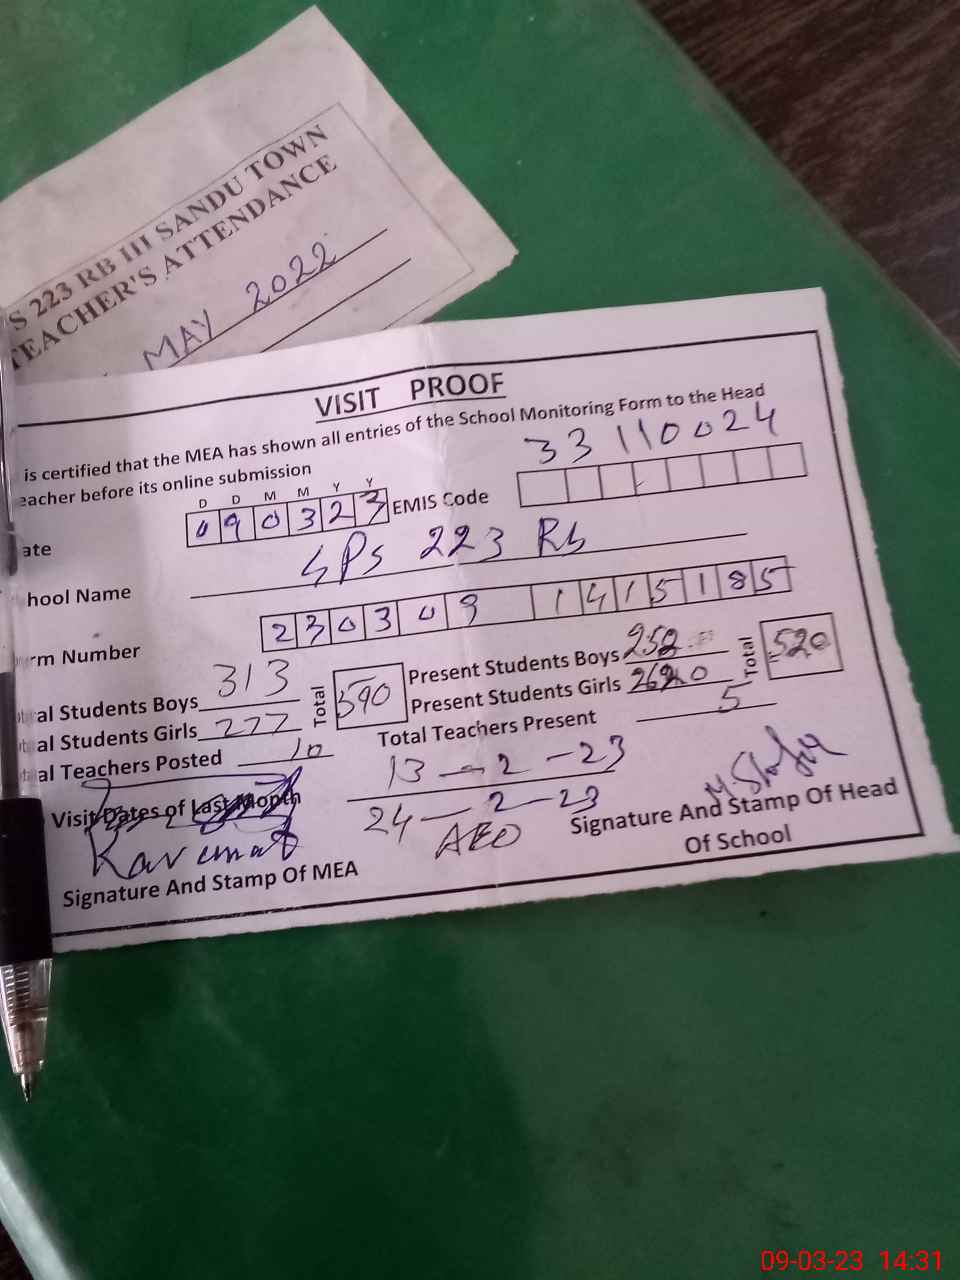 S 223 RB III SANDU TOWN
TEACHER'S ATTENDANCE
MAY 2022
VISIT PROOF
is certified that the MEA has shown all entries of the School Monitoring Form to the Head
eacher before its online submission
33110024
D D M M Y Y
ate 090323 EMIS Code
hool Name GPS 223 Rb
rm Number 230309 1415185
al Students Boys 313 Total 590 Present Students Boys 252 Total 520
al Students Girls 277 Present Students Girls
al Teachers Posted 10 Total Teachers Present 5
Visit Dates of Last Month 13-2-23
24-2-23
AEO
Signature And Stamp Of MEA
Signature And Stamp Of Head
Of School
09-03-23 14:31